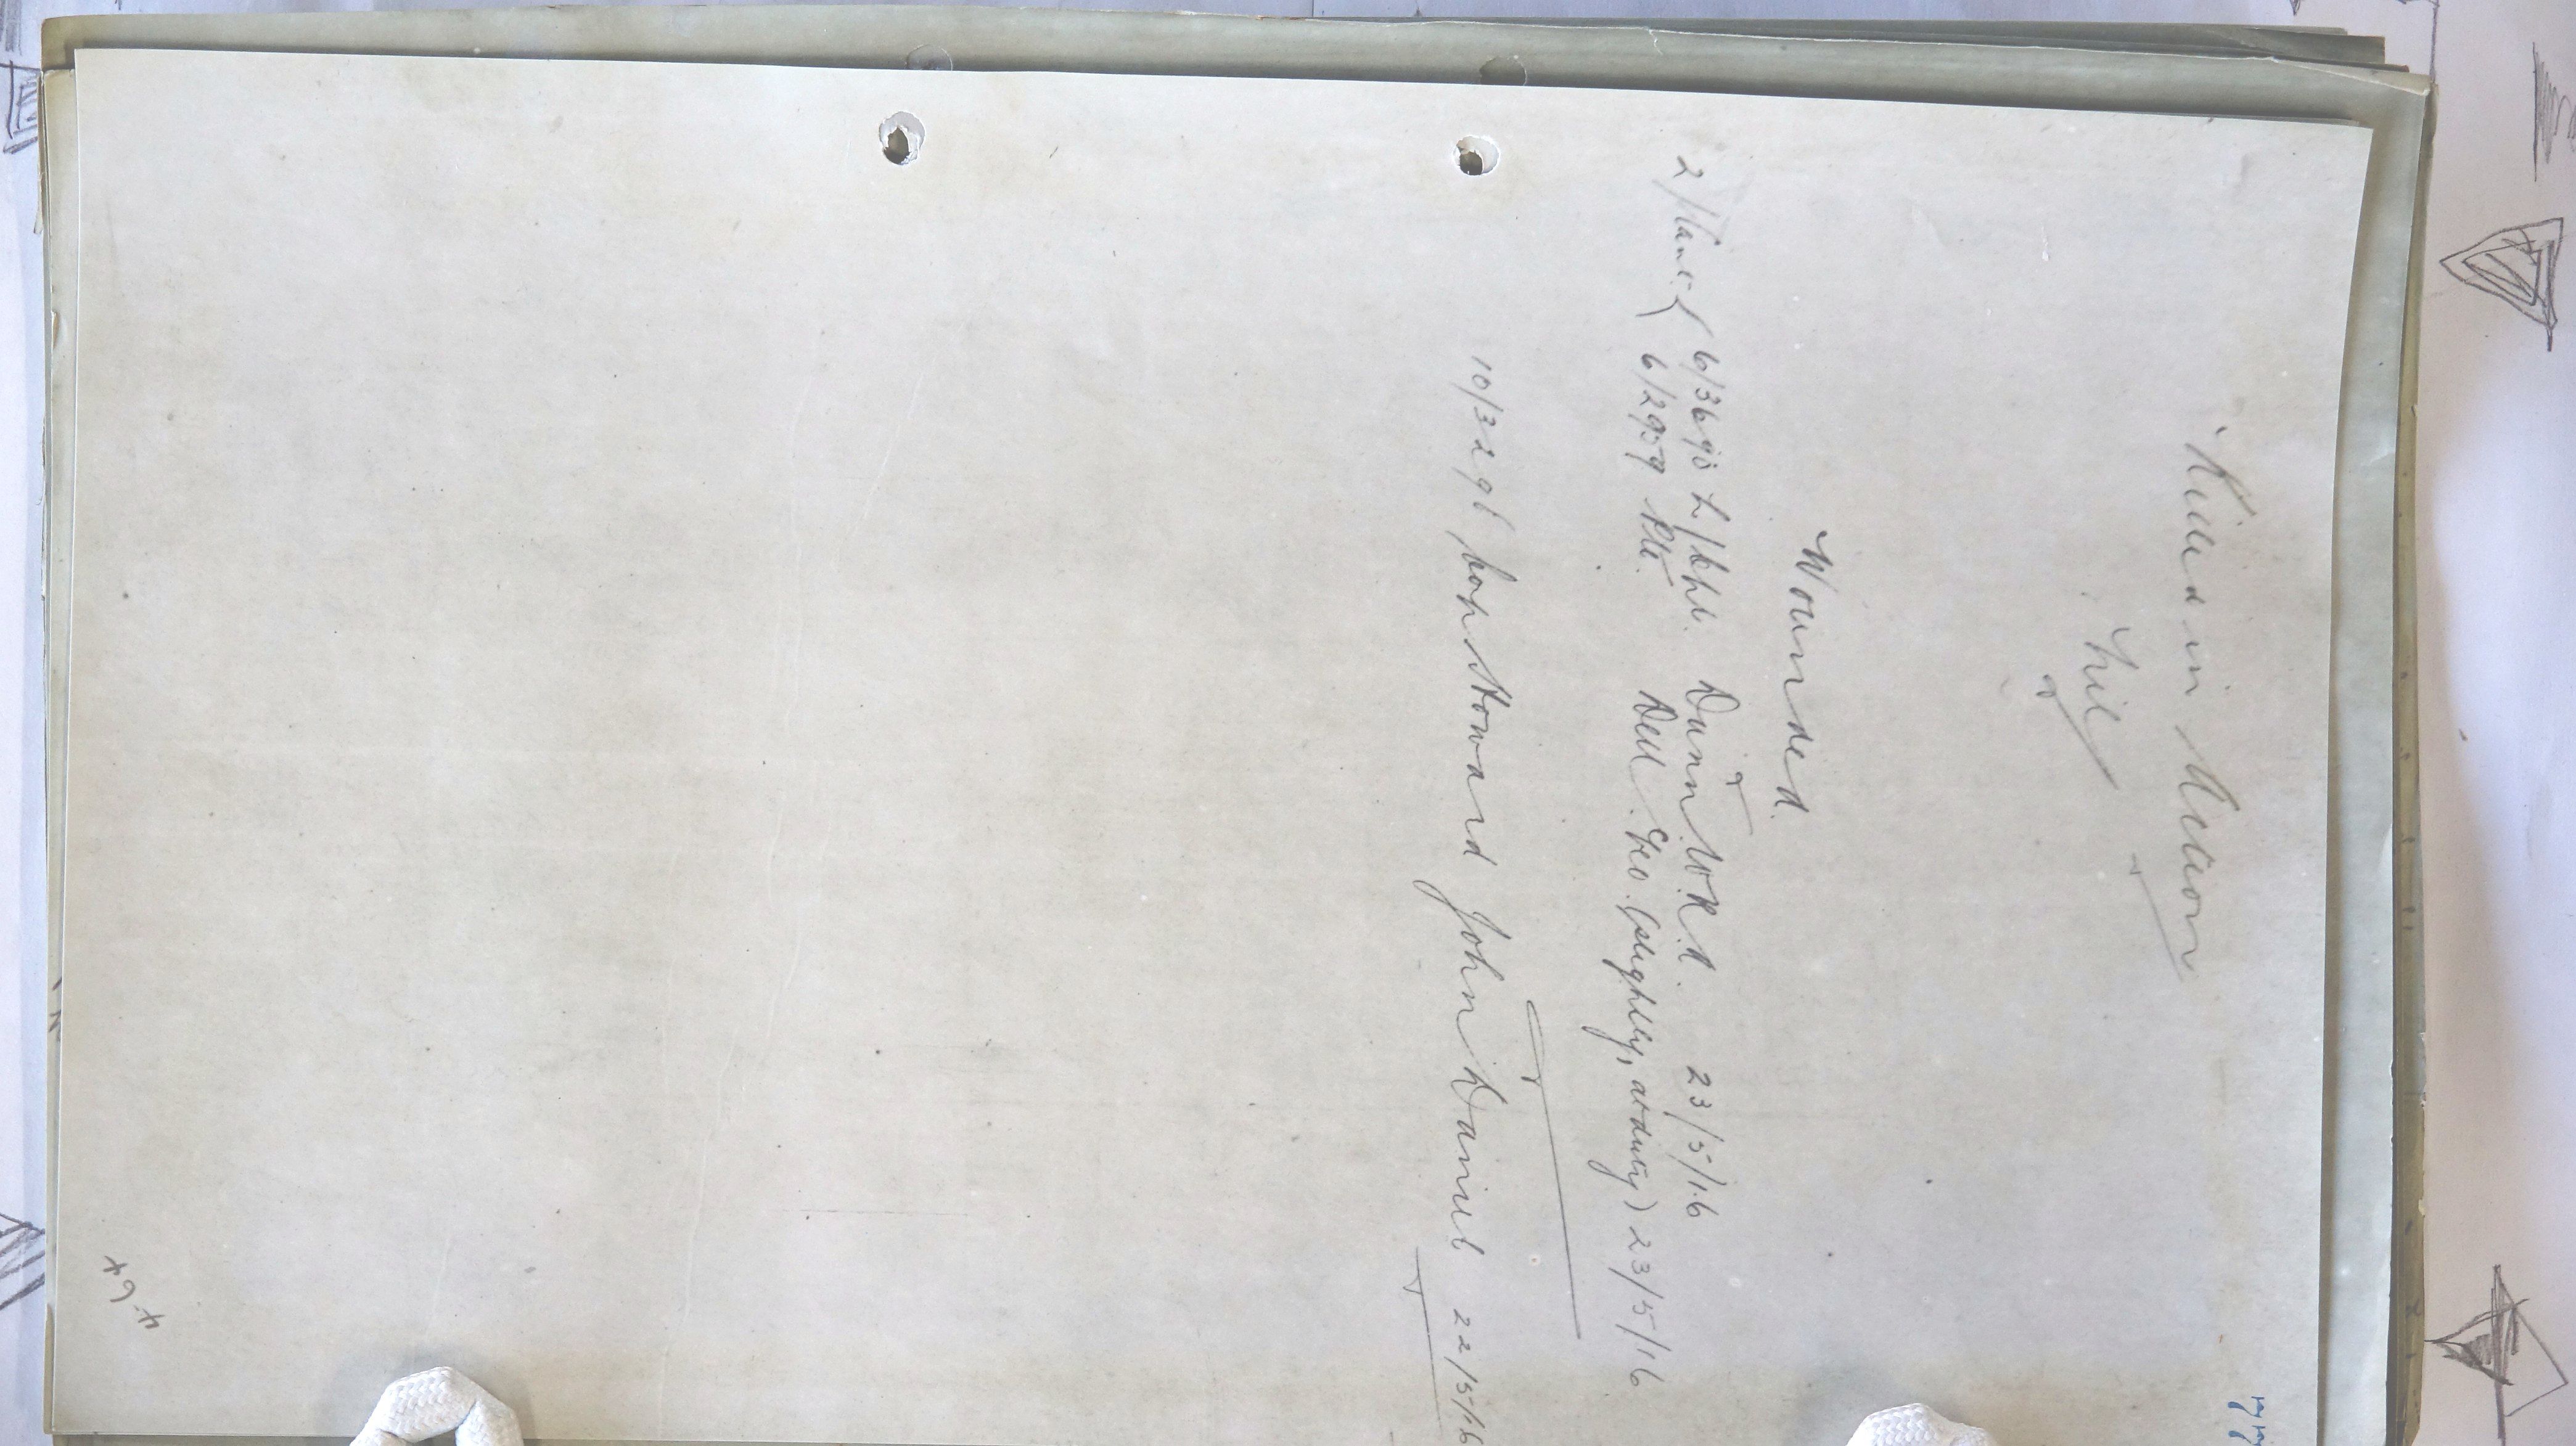 Killed in Action
Nil
Wounded.
6/3690 L/Cpl. Dunn W.R.A. 23/5/16
2/Name 6/2959 Pte. Dell. Geo. (slightly, at duty) 23/5/16
10/3296 Cpl Howard John Daniel 22/5/16